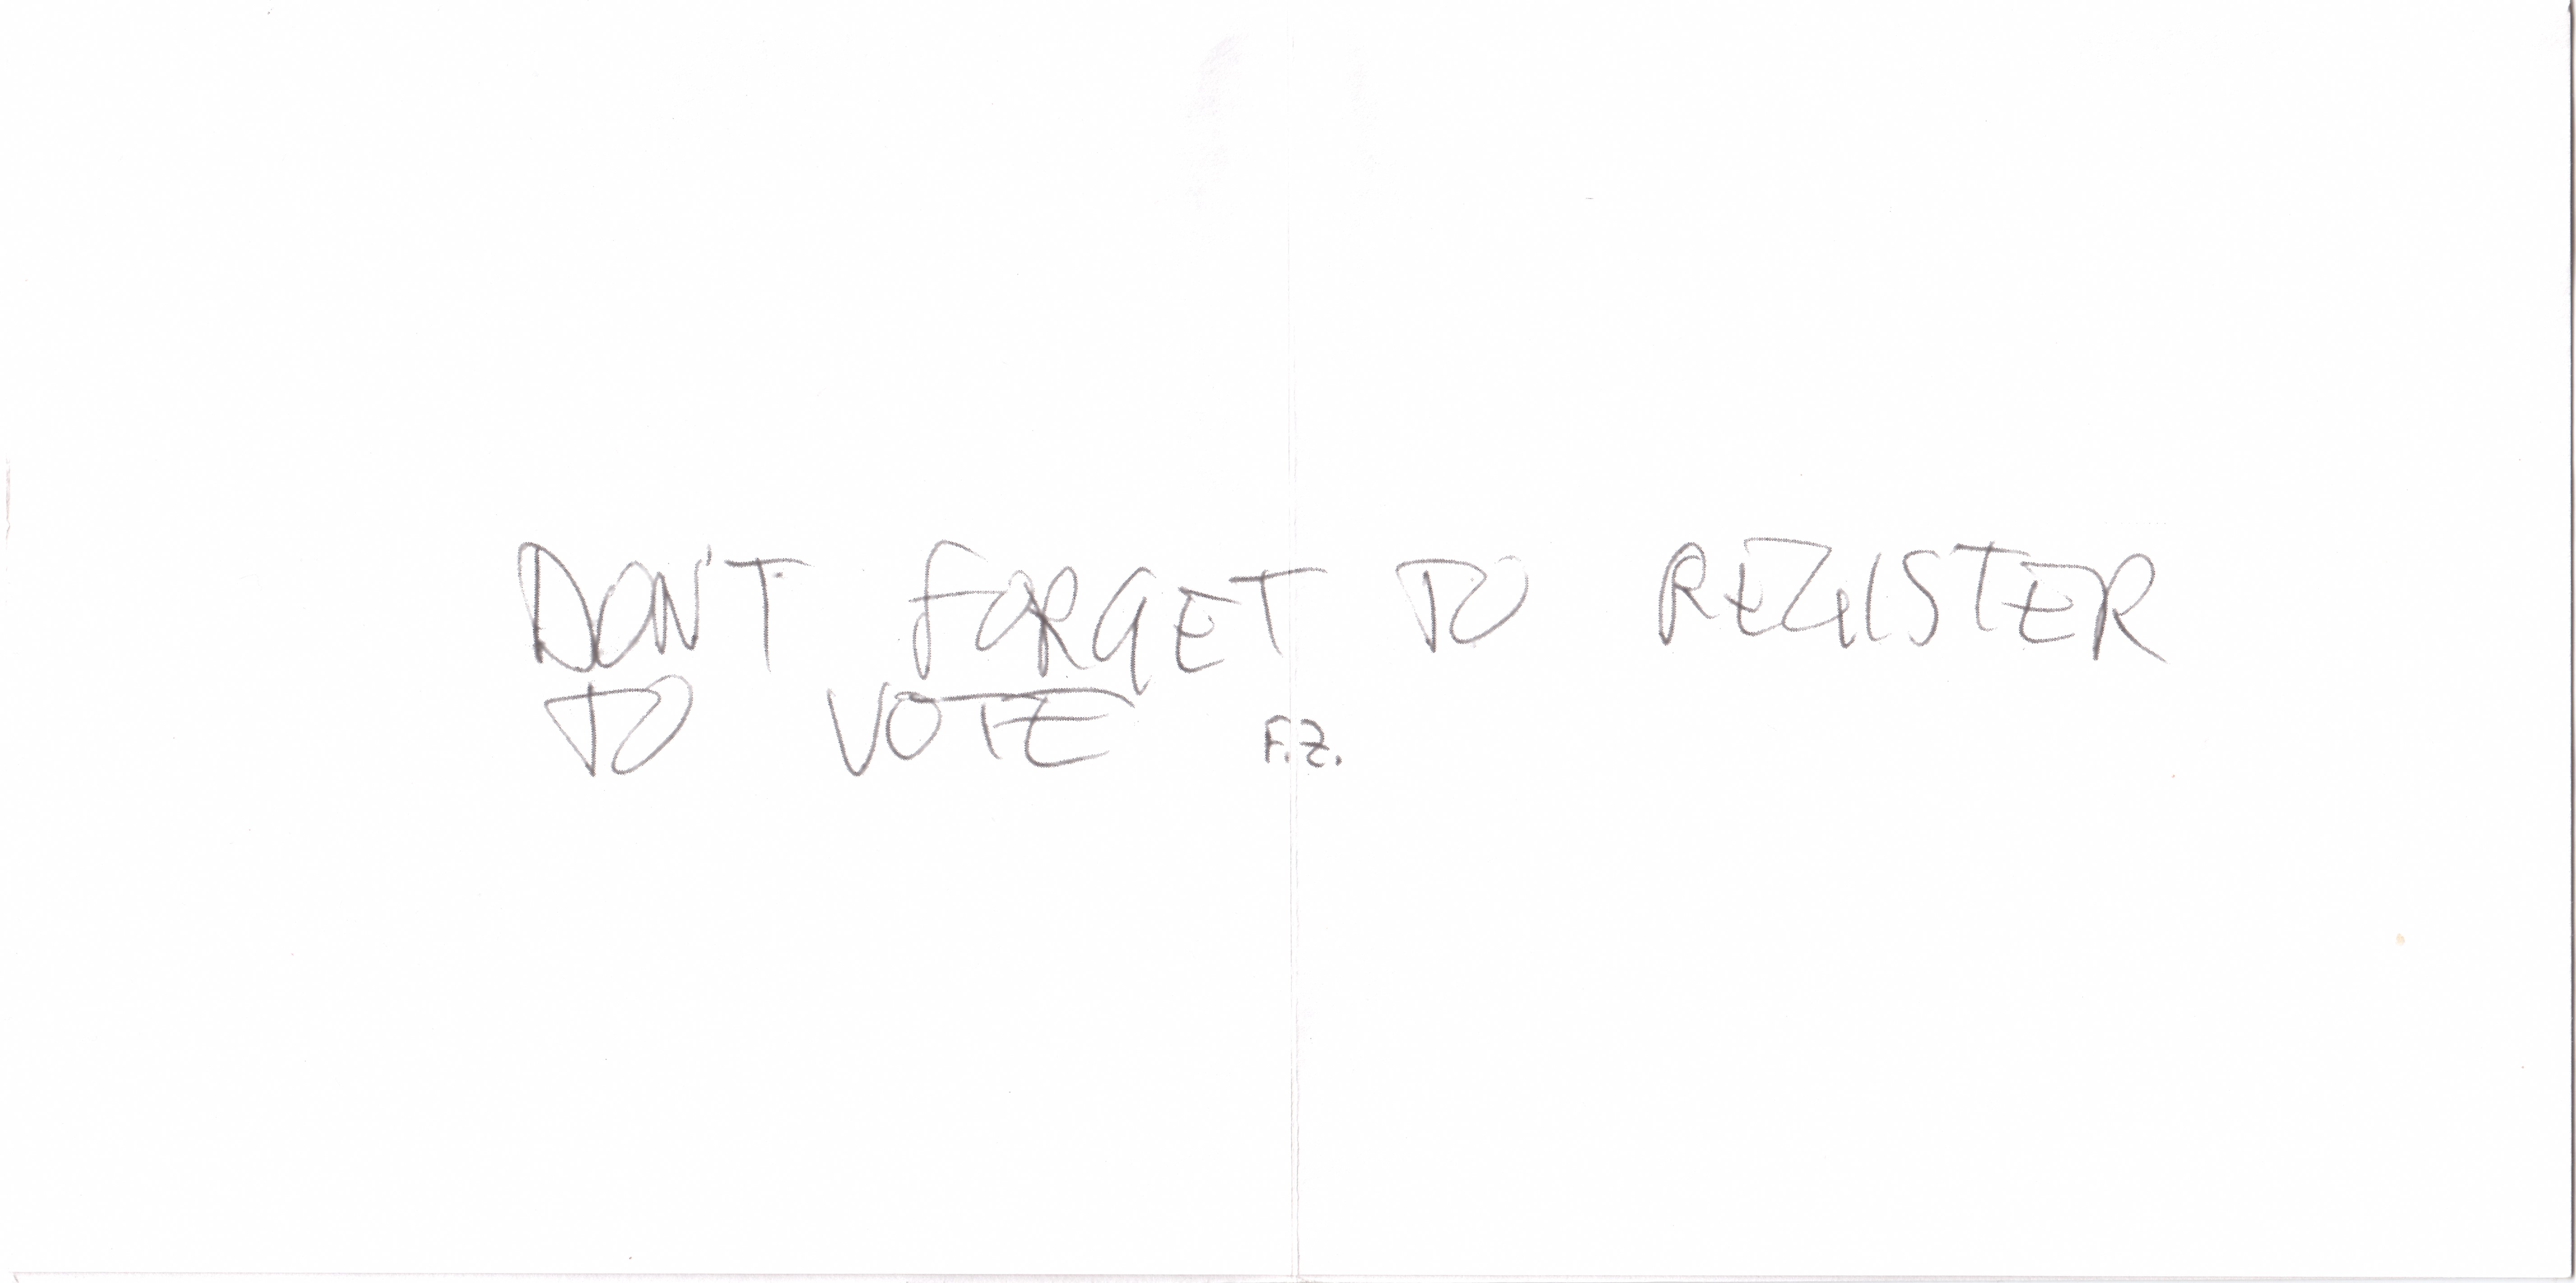 DON'T FORGET TO REGISTER
TO VOTE F.Z.